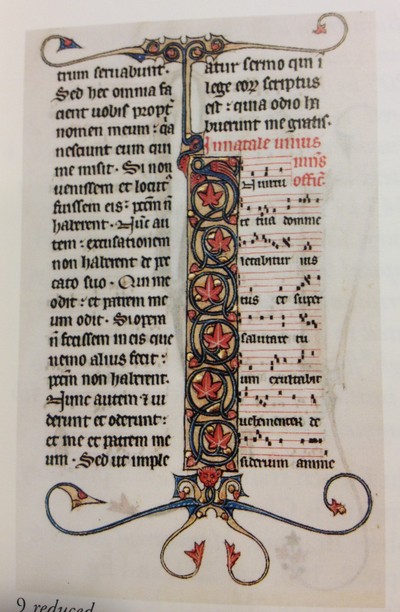 trum seruabunt.
Sed hec omnia fa
cient uobis propt
nomen meum: qa
nesciunt eum qui
me misit. Si non
uenissem et locut
fuissem eis: pctm n
haberent. Nuc au
tem: excusationem
non habent de pec
cato suo. Qui me
odit: et patrem me
um odit. Si opera
n fecissem in eis que
nemo alius fecit:
pctm non haberent.
Nunc autem & ui
derunt et oderunt:
et me et patrem me
um. Sed ut imple
atur sermo qui i
lege eoꝝ scriptus
est: quia odio ha
buerunt me gratis.
In natale unius
mris
offic.
In uirtu
te tua domine
letabitur ius
tus et super
salutare tu
um exultabit
uehementer de
siderium anime
9 reduced